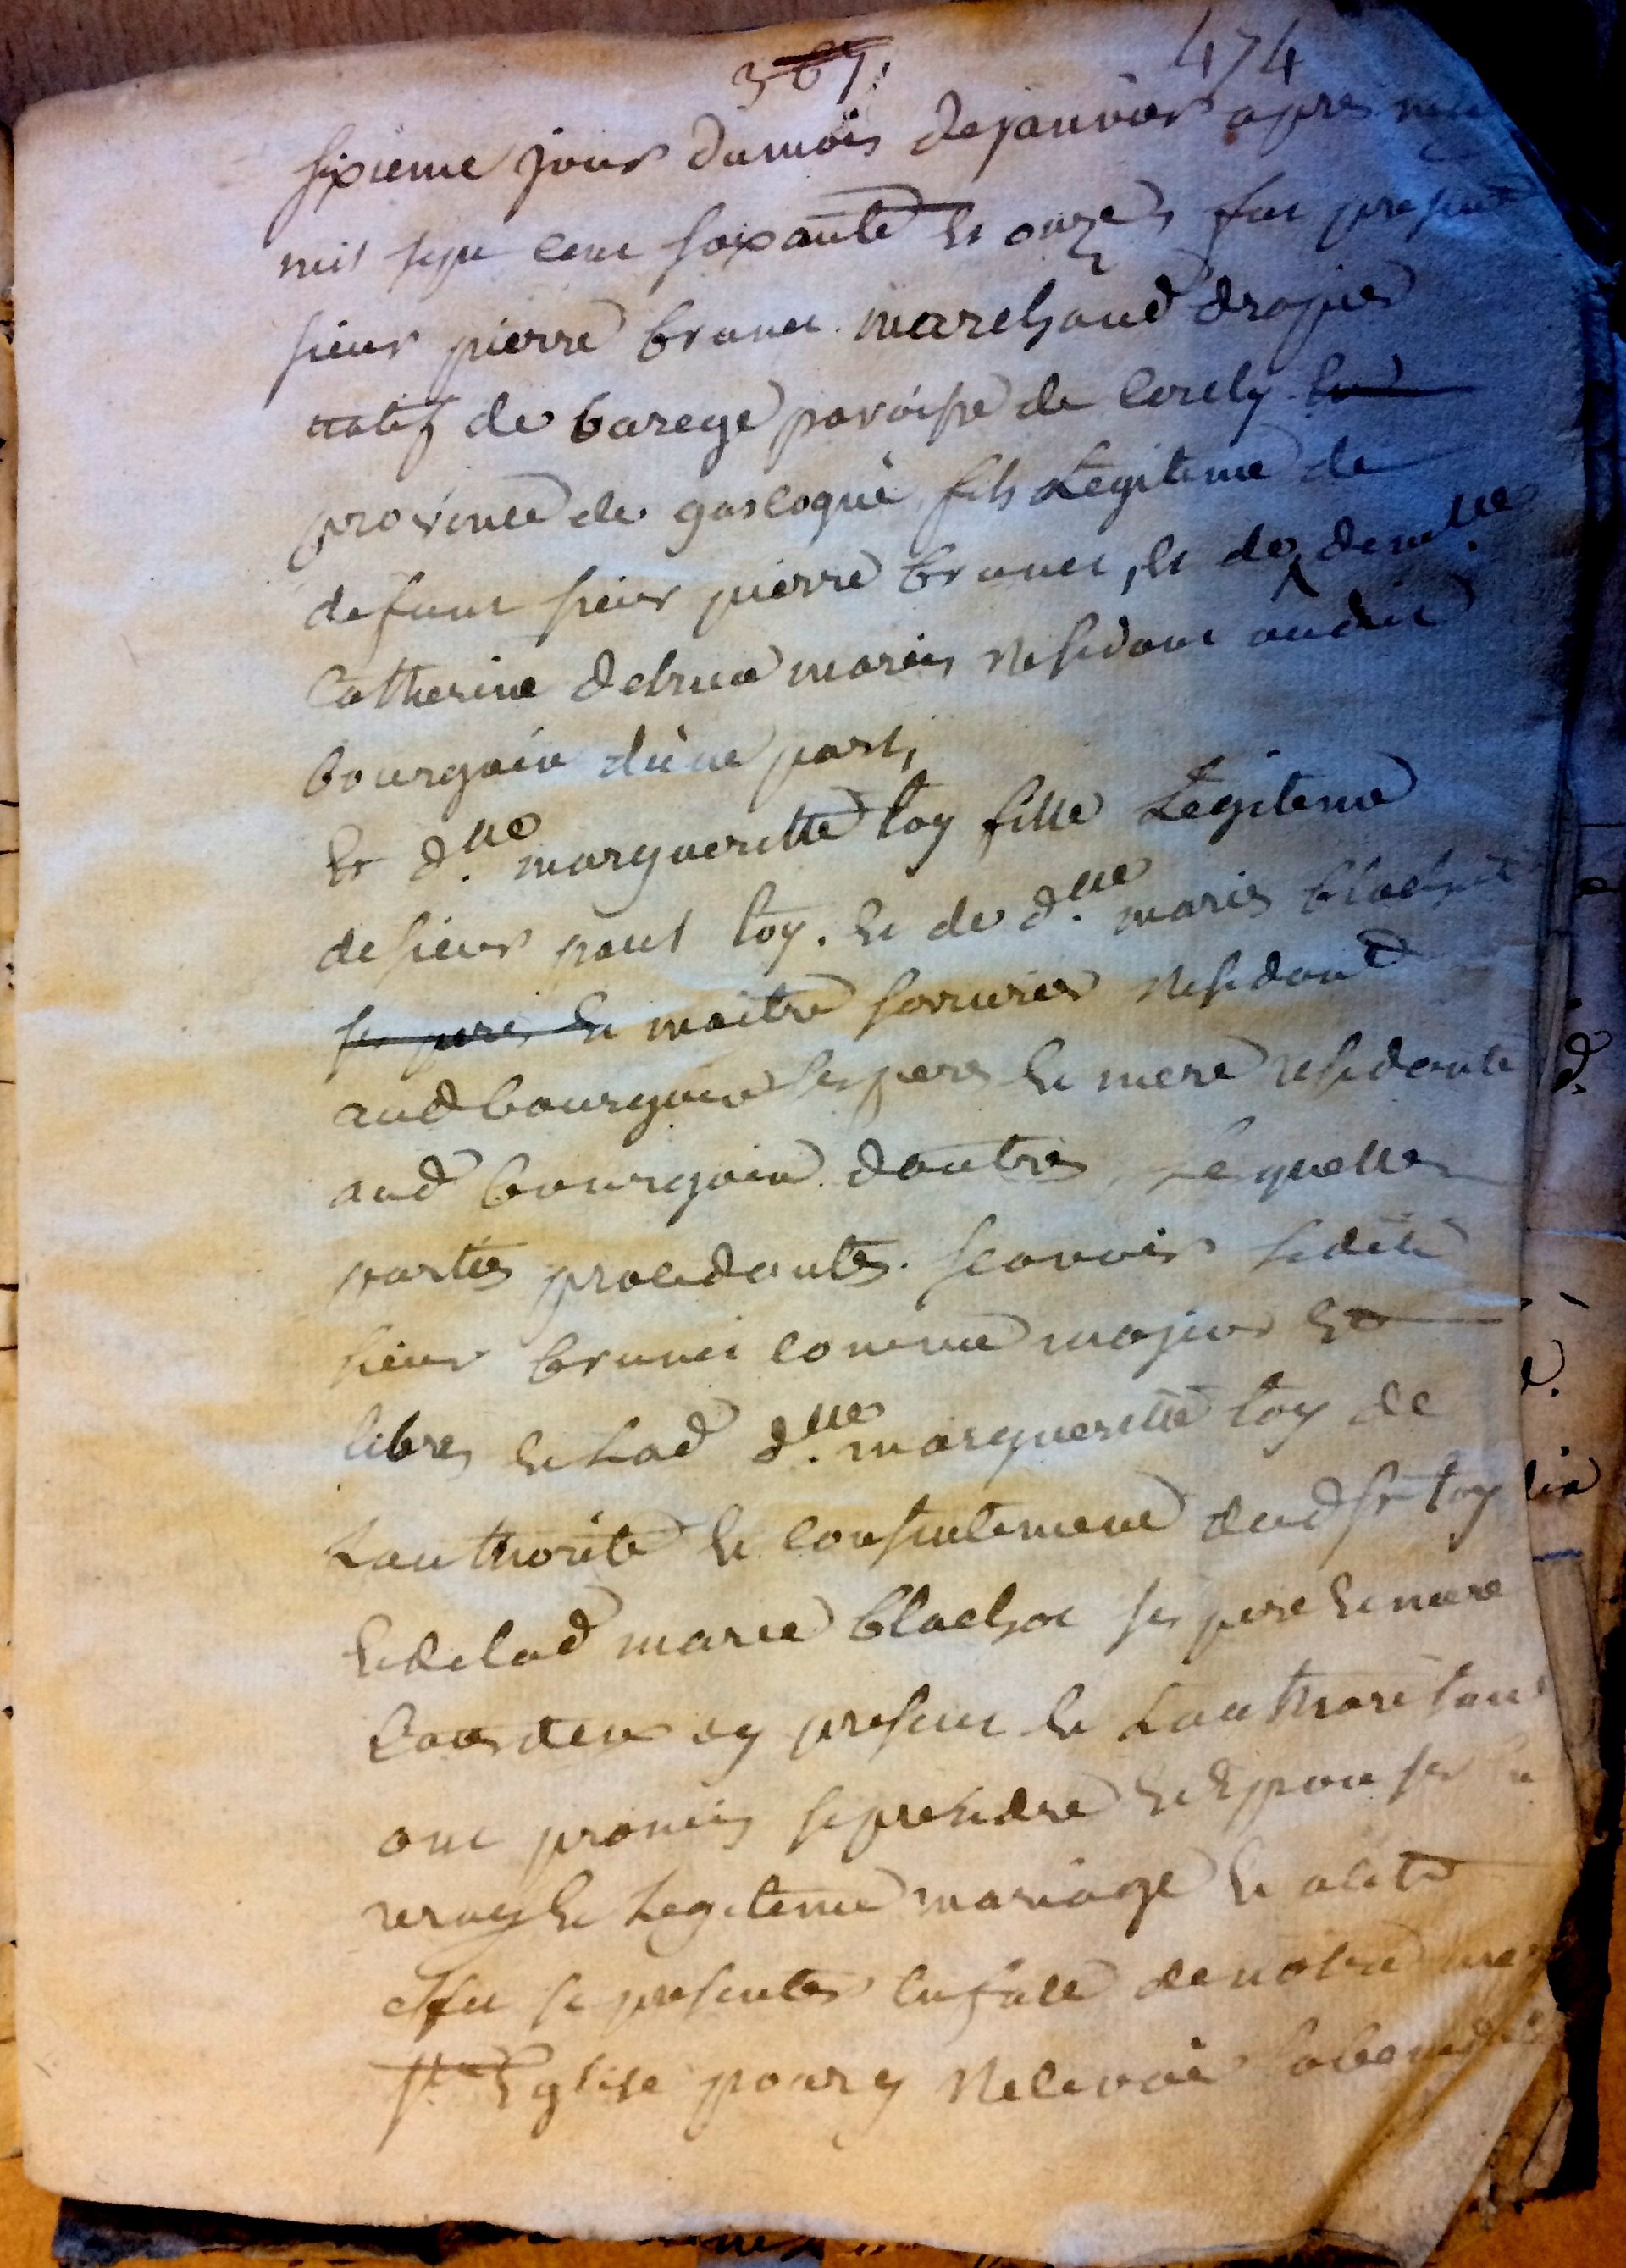 369 474
sixieme jour du mois de janvier apres midy
mil sept cent soixante et onze, fut present
sieur pierre brunet marchand drapier
natif de barege paroisse de
province de gascogne fils Legitime de
defunt sieur pierre brunet, et de demlle
Catherine mariés residant audit
bourgoin d'une part,
et dlle. margueritte toy fille Legitime
de sieur paul toy. et de dlle. marie blachot
ses pere et maitre serrurier residant
aud bourgoin ses pere et mere residante
aud bourgoin d'autre, Lesquelles
parties procedantes. scavoir ledit
sieur brunet comme majeur et
libre, et Lad dlle. margueritte toy de
Lauthorité et consentement dud sr toy
et de lad marie blachot ses pere et mere
tous deux cy present et Lauthorisant
ont promis se prendre et Epouser en
vray et Legitime mariage et a cet
effet se presenter en face de notre mere
ste Eglise pour y recevoir la benediction